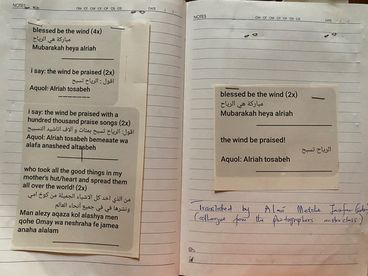 NOTES
DATE
blessed be the wind (4x)
مباركة هي الرياح
Mubarakah heya alriah
i say: the wind be praised (2x)
اقول : الرياح تسبح
Aquol: Alriah tosabeh
i say: the wind be praised with a
hundred thousand praise songs (2x)
اقول: الرياح تسبح بمئات و آلاف اناشيد التسبيح
Aquol: Alriah tosabeh bemeaate wa
alafa anasheed altasbeh
who took all the good things in my
mother's hut/heart and spread them
all over the world! (2x)
من الذي اخذ كل الاشياء الجميلة من كوخ امي
ونشرها في في جميع أنحاء العالم
Man alezy aqaza kol alashya men
qohe Omay wa neshraha fe jamea
anaha alalam
NOTES
blessed be the wind (2x)
مباركة هي الرياح
Mubarakah heya alriah
the wind be praised!
الرياح تسبح
Aquol: Alriah tosabeh
Translated by Alaa
(colleague from the photographers masterclass)